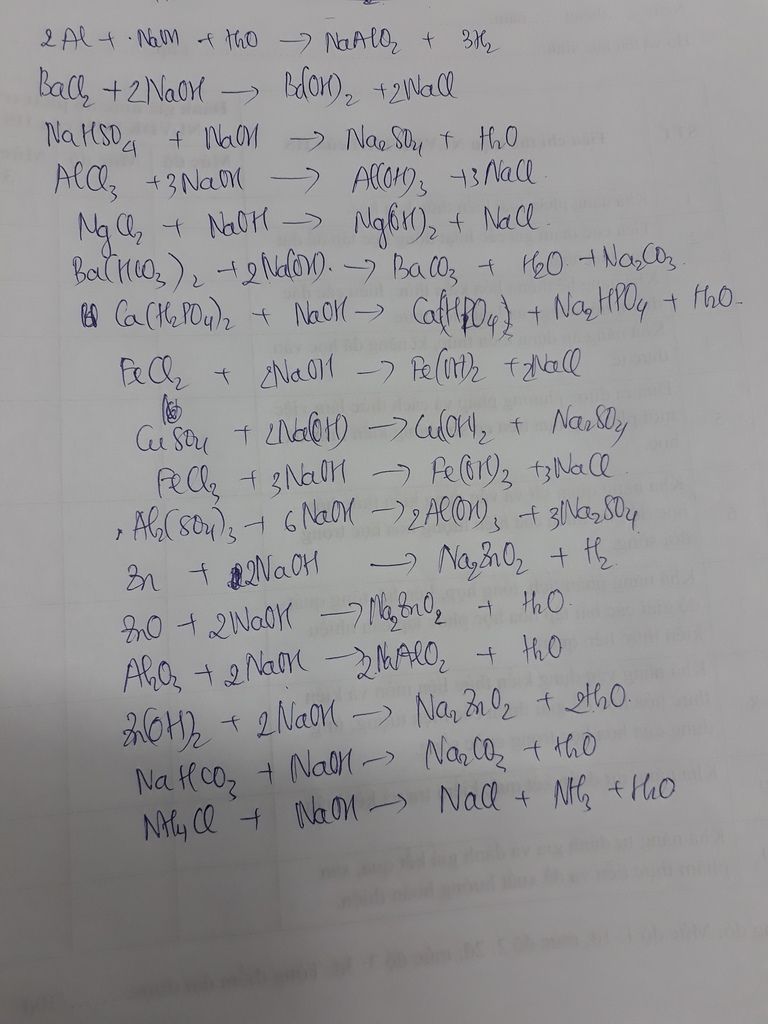 2Al + NaOH + H2O → NaAlO2 + 3H2
BaCl2 + 2NaOH → Ba(OH)2 + 2NaCl
NaHSO4 + NaOH → Na2SO4 + H2O
AlCl3 + 3NaOH → Al(OH)3 + 3NaCl
MgCl2 + NaOH → Mg(OH)2 + NaCl
Ba(HCO3)2 + 2Na(OH) → BaCO3 + H2O + Na2CO3
Ca(H2PO4)2 + NaOH → Ca(HPO4)2 + Na2HPO4 + H2O
FeCl2 + 2NaOH → Fe(OH)2 + 2NaCl
CuSO4 + 2Na(OH) → Cu(OH)2 + Na2SO4
FeCl3 + 3NaOH → Fe(OH)3 + 3NaCl
Al2(SO4)3 + 6NaOH → 2Al(OH)3 + 3Na2SO4
Zn + 2NaOH → Na2ZnO2 + H2
ZnO + 2NaOH → Na2ZnO2 + H2O
Al2O3 + 2NaOH → 2NaAlO2 + H2O
Zn(OH)2 + 2NaOH → Na2ZnO2 + 2H2O
NaHCO3 + NaOH → Na2CO3 + H2O
NH4Cl + NaOH → NaCl + NH3 + H2O